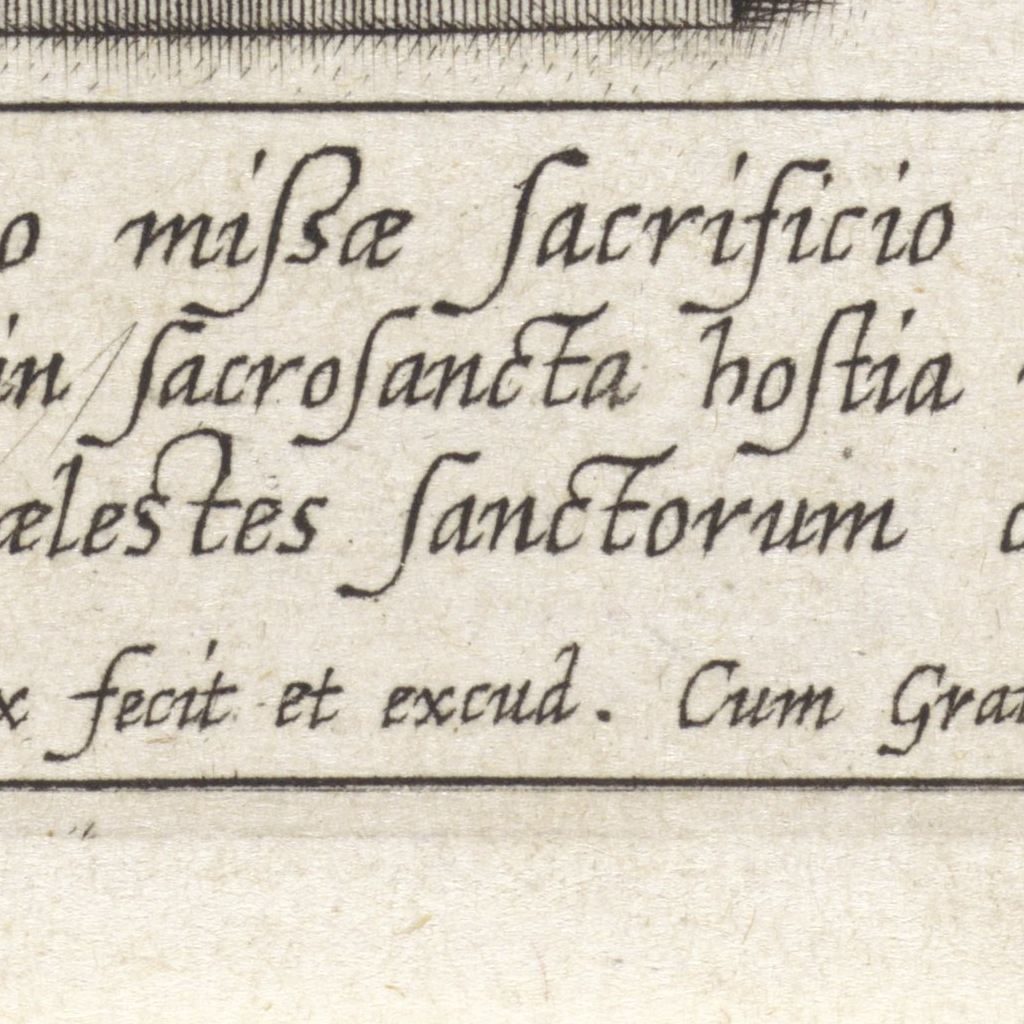 o mißæ ſacrificio
in ſacroſancta hoſtia
æleſtes ſanctorum
x fecit et excud. Cum Gra